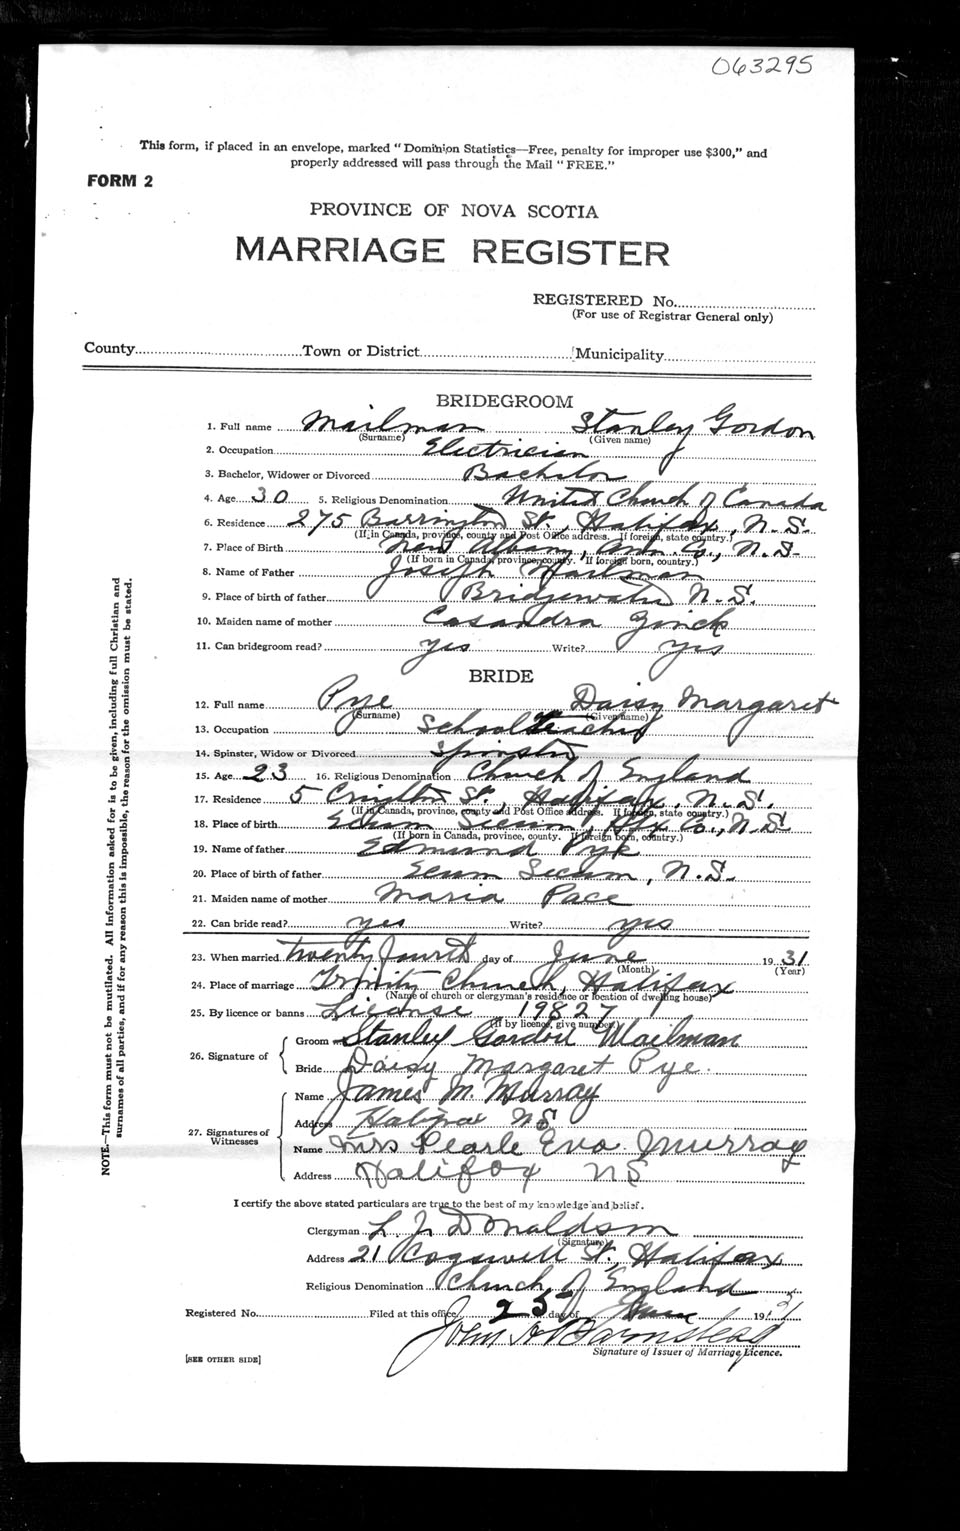 063295
This form, if placed in an envelope, marked "Dominion Statistics—Free, penalty for improper use $300," and
properly addressed will pass through the Mail "FREE."
FORM 2
PROVINCE OF NOVA SCOTIA
MARRIAGE REGISTER
REGISTERED No.
(For use of Registrar General only)
County Town or District Municipality
BRIDEGROOM
1. Full name Mailman Stanley Gordon
(Surname) (Given name)
2. Occupation Electrician
3. Bachelor, Widower or Divorced Bachelor
4. Age 30 5. Religious Denomination United Church of Canada
6. Residence 275 Barrington St., Halifax, N.S.
(If in Canada, province, county and Post Office address. If foreign, state country.)
7. Place of Birth New Albany, Ann. Co., N.S.
(If born in Canada, province, county. If foreign born, country.)
8. Name of Father Joseph Mailman
9. Place of birth of father Bridgewater N.S.
10. Maiden name of mother Casandra
11. Can bridegroom read? yes Write? yes
BRIDE
12. Full name Pye Daisy Margaret
(Surname) (Given name)
13. Occupation School teacher
14. Spinster, Widow or Divorced Spinster
15. Age 23 16. Religious Denomination Church of England
17. Residence 5 St., Halifax, N.S.
(If in Canada, province, county and Post Office address. If foreign, state country.)
18. Place of birth Secum, Hfx Co., N.S.
(If born in Canada, province, county. If foreign born, country.)
19. Name of father Edmund Pye
20. Place of birth of father Ecum Secum, N.S.
21. Maiden name of mother Maria Pace
22. Can bride read? yes Write? yes
23. When married twenty fourth day of June 1931
(Month) (Year)
24. Place of marriage Trinity Church, Halifax
(Name of church or clergyman's residence or location of dwelling house)
25. By licence or banns License 19827
(If by licence, give number)
26. Signature of
Groom Stanley Gordon Mailman
Bride Daisy Margaret Pye.
27. Signatures of Witnesses
Name James M. Murray
Address Halifax NS
Name Mrs Pearle Eva Murray
Address Halifax NS
I certify the above stated particulars are true to the best of my knowledge and belief.
Clergyman L. J. Donaldson
(Signature)
Address 21 Cogswell St., Halifax
Religious Denomination Church of England
Registered No. Filed at this office 25 day of June 1931
John A Barnstead
Signature of Issuer of Marriage Licence.
[SEE OTHER SIDE]
NOTE.—This form must not be mutilated. All information asked for is to be given, including full Christian and
surnames of all parties, and if for any reason this is impossible, the reason for the omission must be stated.